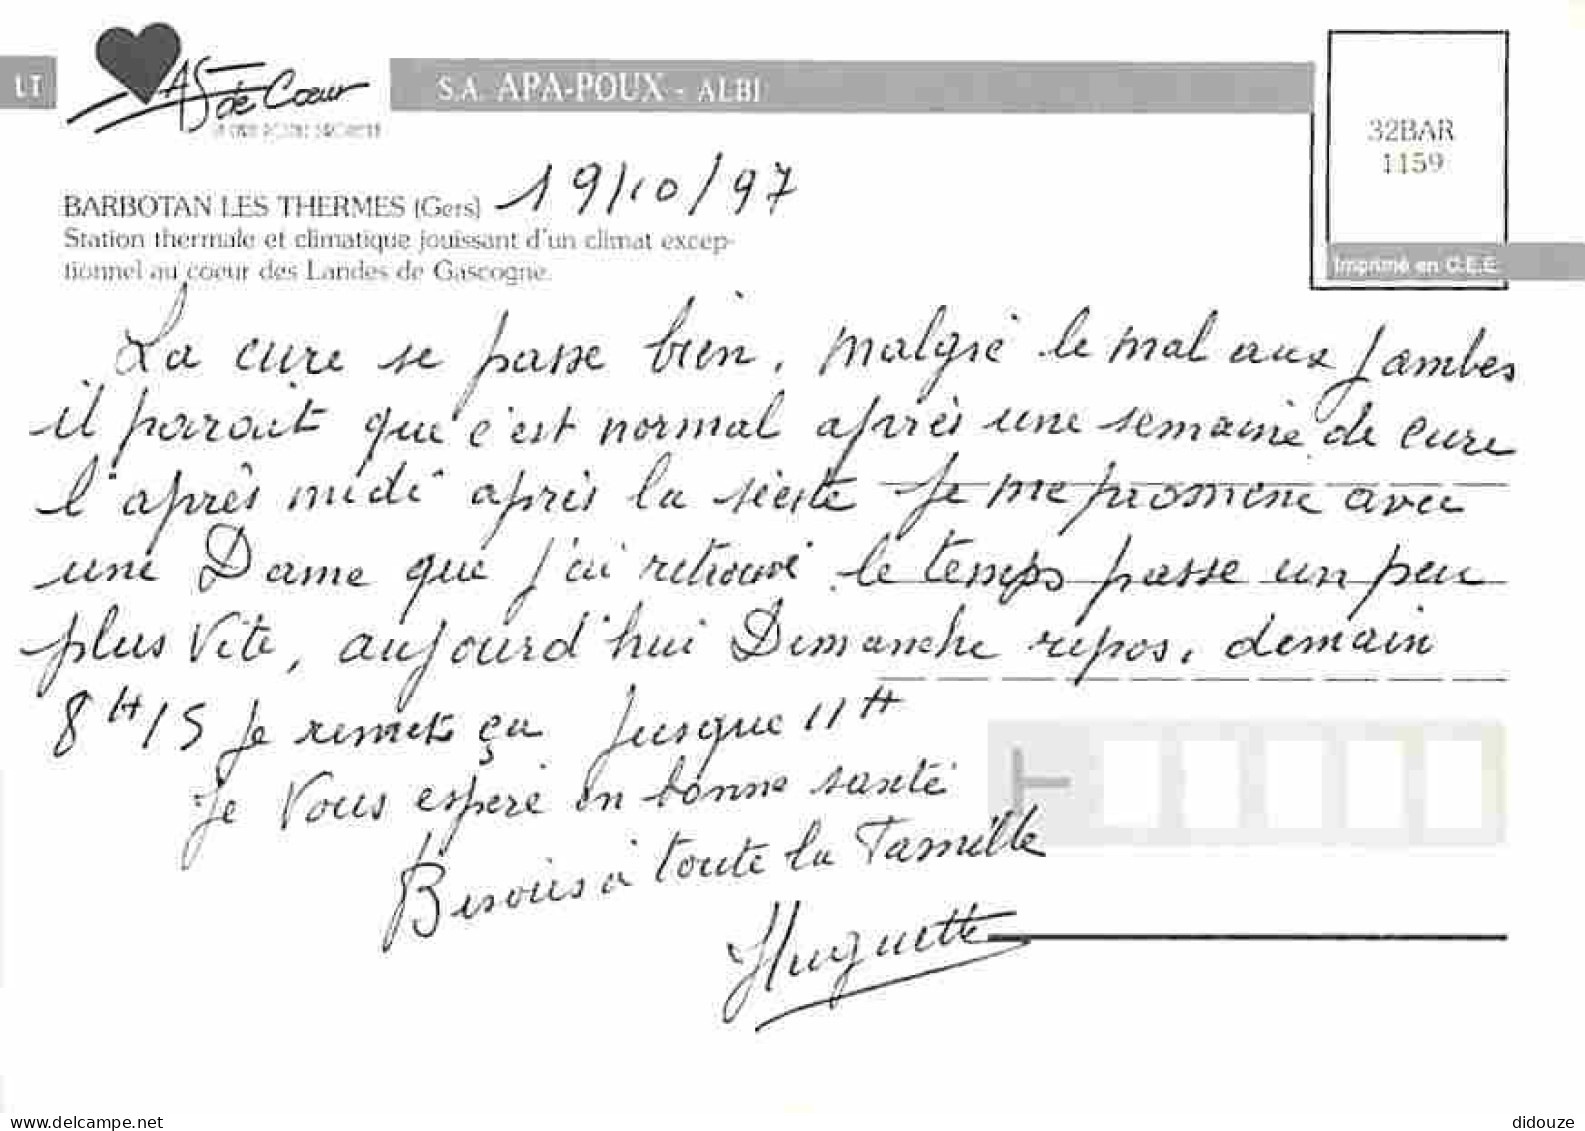 LT
AS de Cœur
S.A. APA-POUX - ALBI
32BAR
1159
Imprimé en C.E.E.
19/10/97
BARBOTAN LES THERMES (Gers)
Station thermale et climatique jouissant d'un climat excep-
tionnel au coeur des Landes de Gascogne.
La cure se passe bien, malgré le mal aux jambes
il parait que c'est normal après une semaine de cure
l'après midi après la sieste je me promène avec
une Dame que j'ai retrouvé. le temps passe un peu
plus vite, aujourd'hui Dimanche repos, demain
8H15 je remet ça jusque 11H
Je vous espère en bonne santé
Bisous à toute la Famille
Huguette
www.delcampe.net
didouze